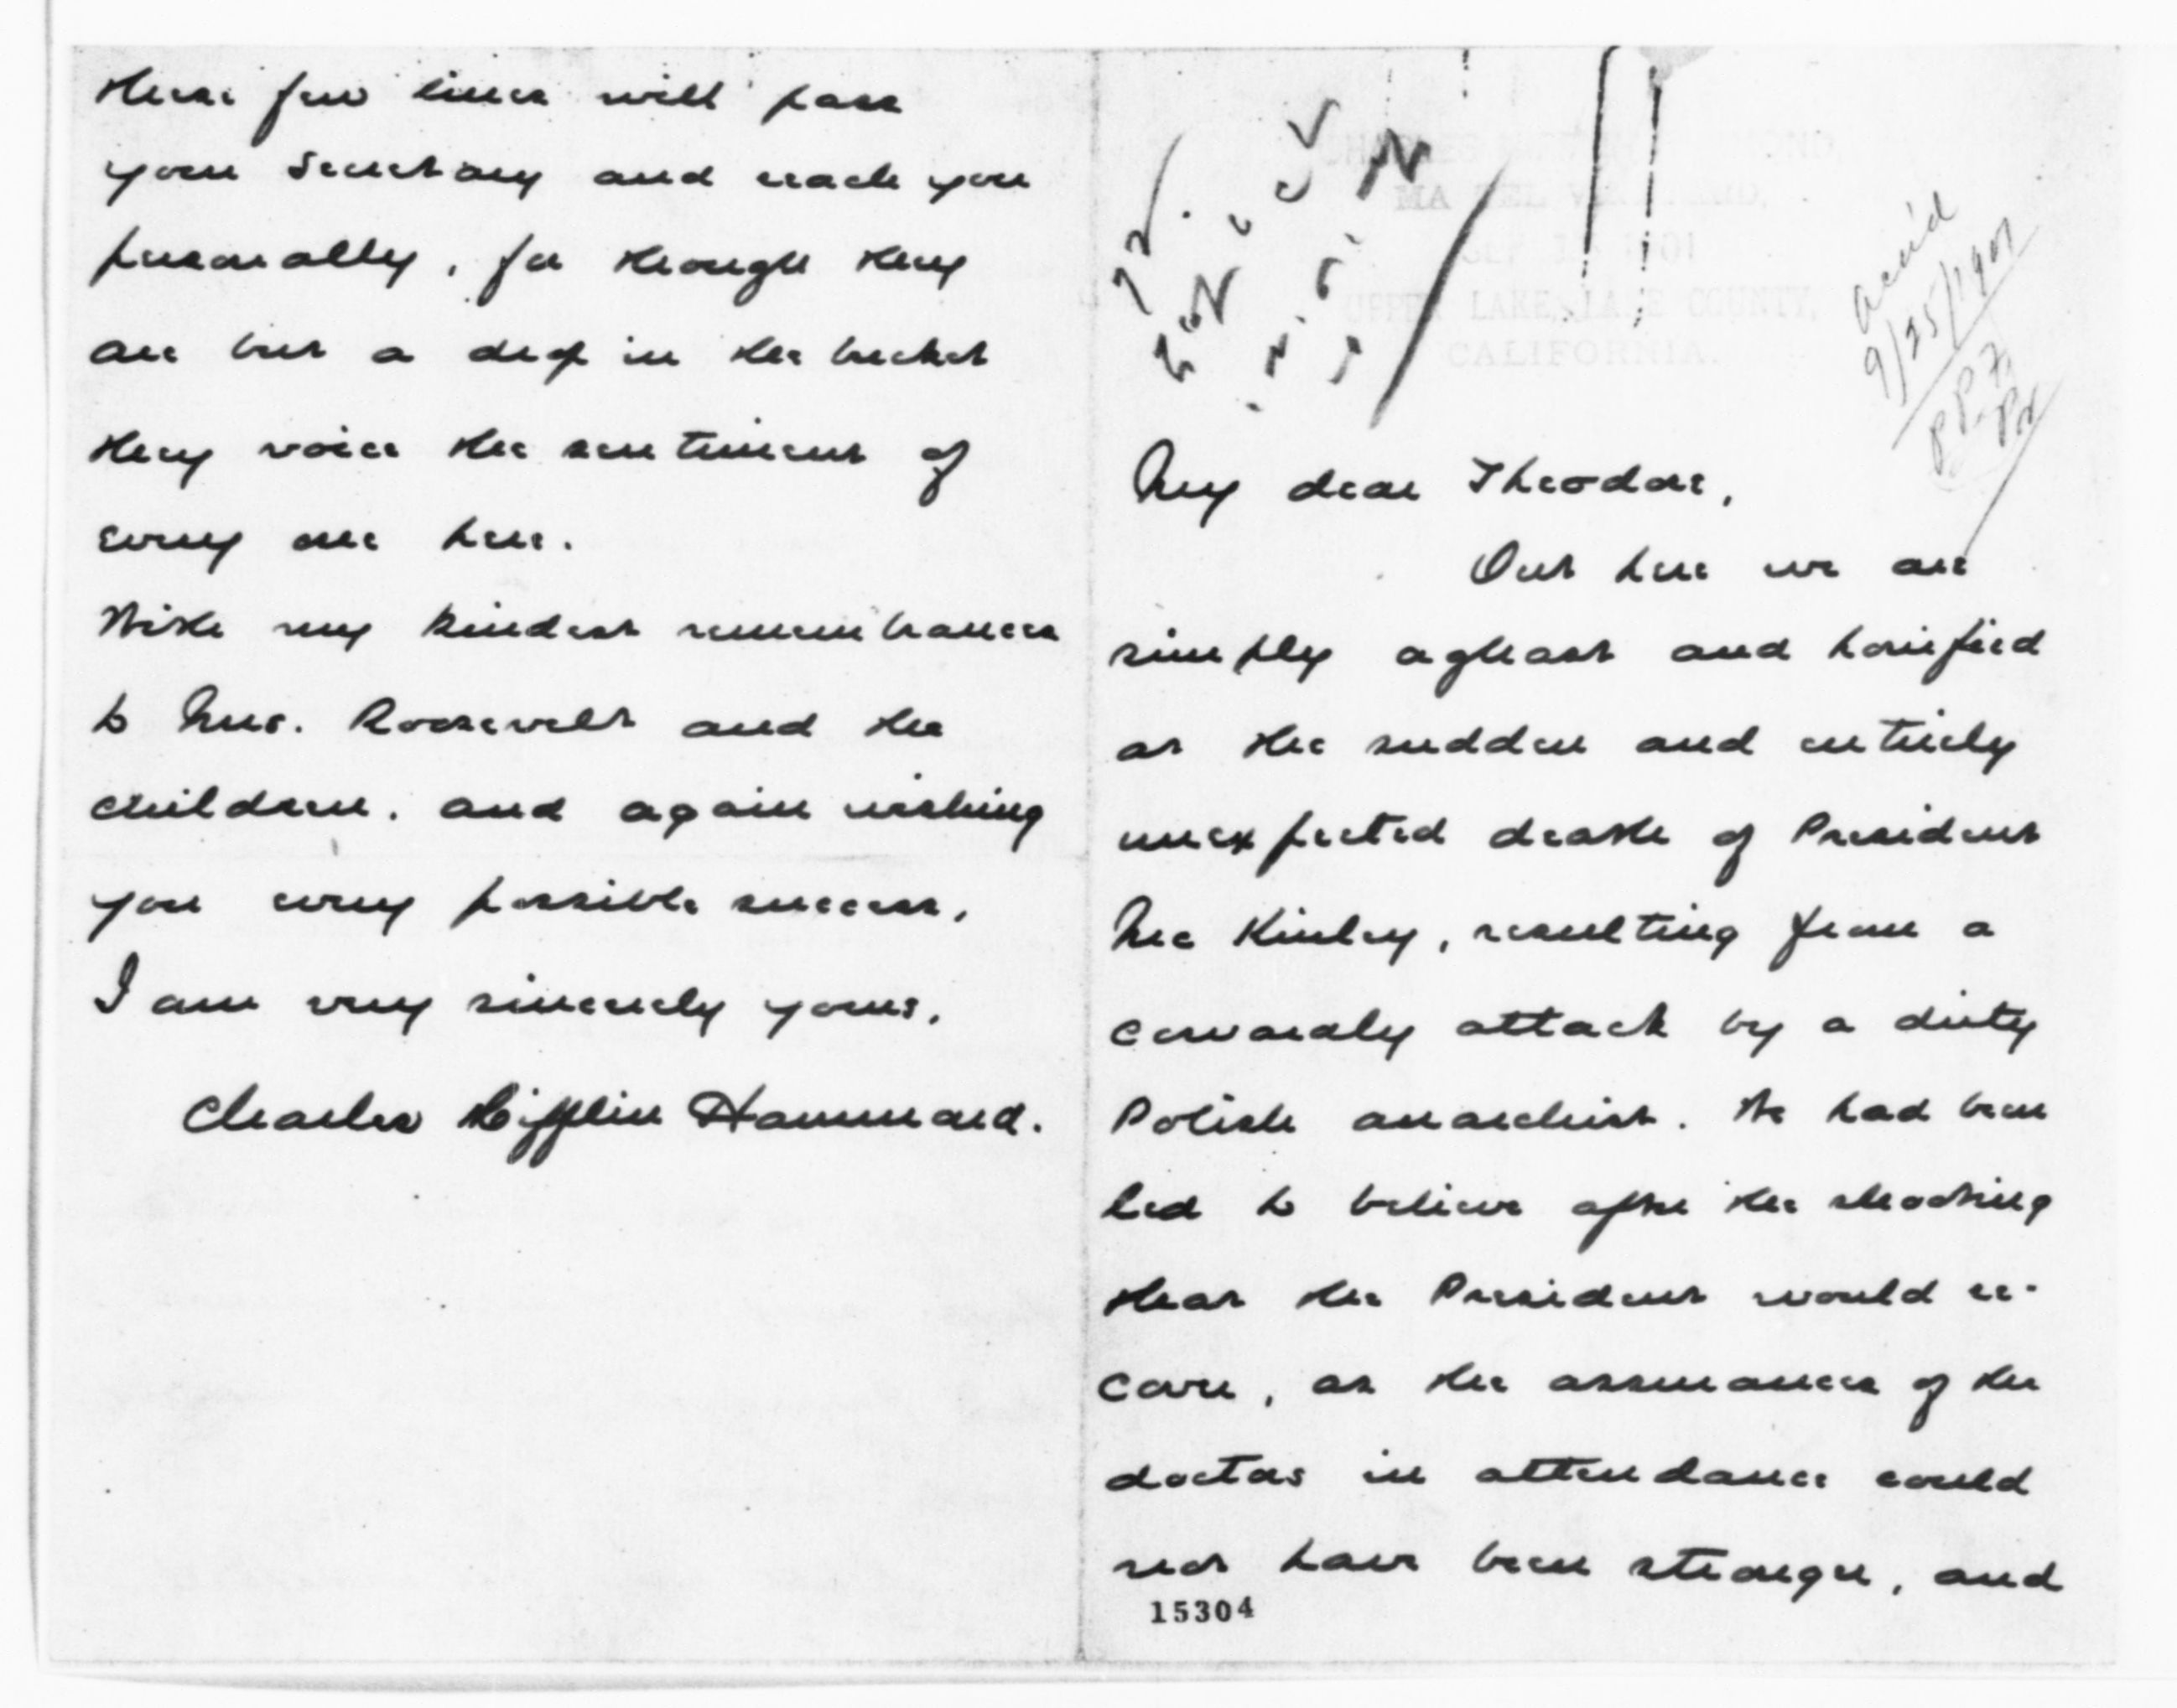 these few lines will pass
your Secretary and reach you
personally, for though they
are but a drop in the bucket
they voice the sentiment of
every one here.
With my kindest remembrances
to Mrs. Roosevelt and the
children, and again wishing
you every possible success,
I am very sincerely yours,
Charles Mifflin Hammond.
CHARLES MIFFLIN HAMMOND,
UPPER LAKE, LAKE COUNTY,
CALIFORNIA.
ack'd
9/25/1901
PPF
My dear Theodore,
Out here we are
simply aghast and horrified
at the sudden and entirely
unexpected death of President
McKinley, resulting from a
cowardly attack by a dirty
Polish anarchist. We had been
led to believe after the shooting
that the President would re-
cover, as the assurances of the
doctors in attendance could
not have been stronger, and
15304